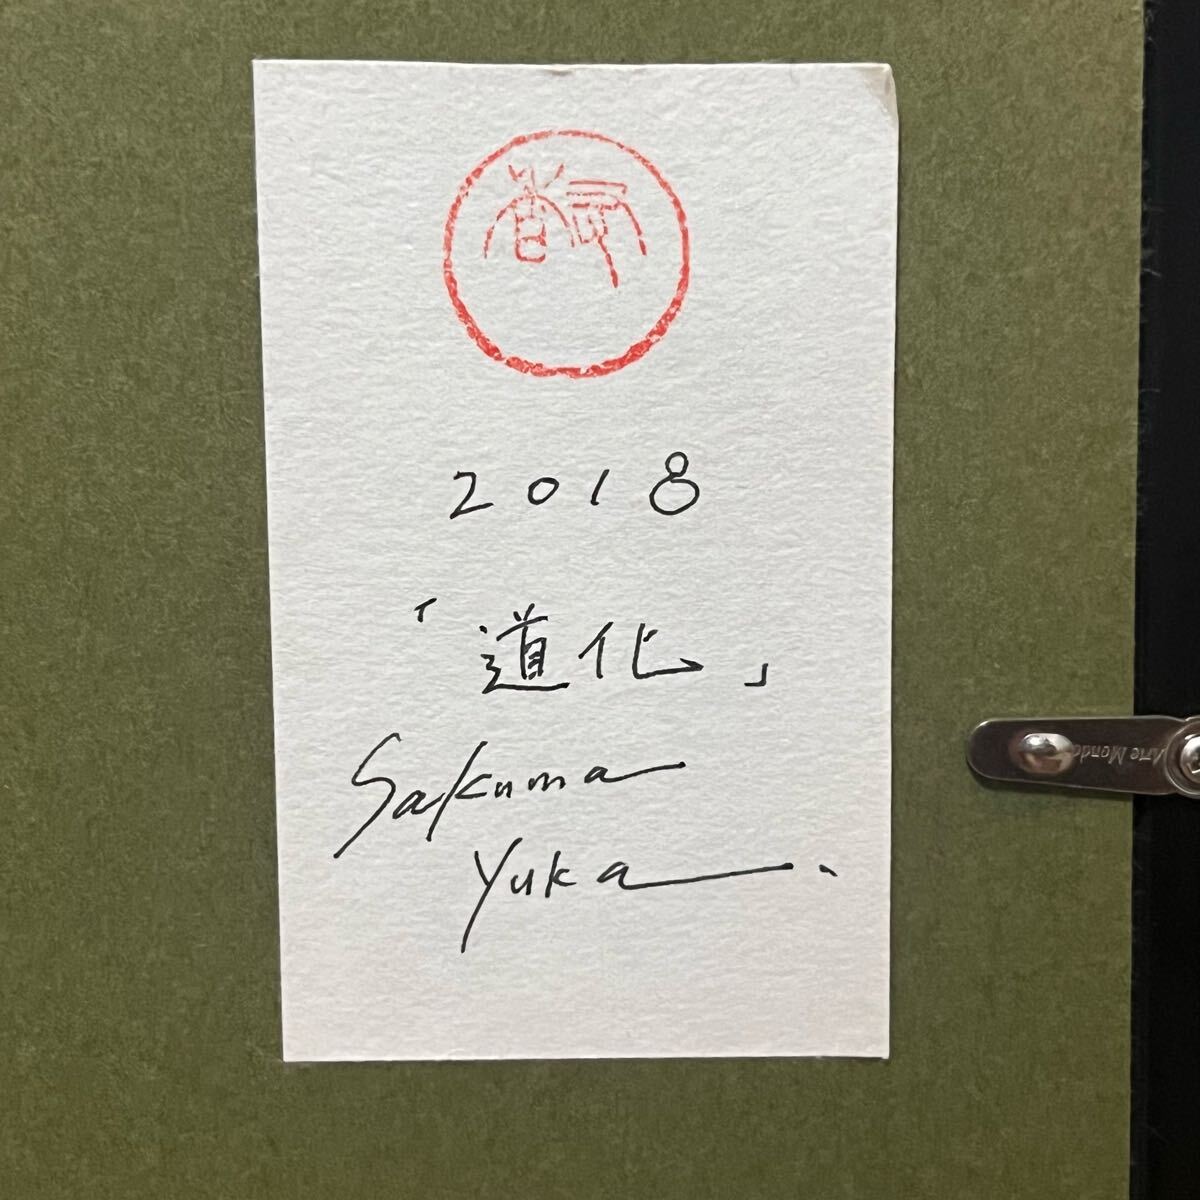 2018
「道化」
Sakuma
Yuka.
Arte Mondo